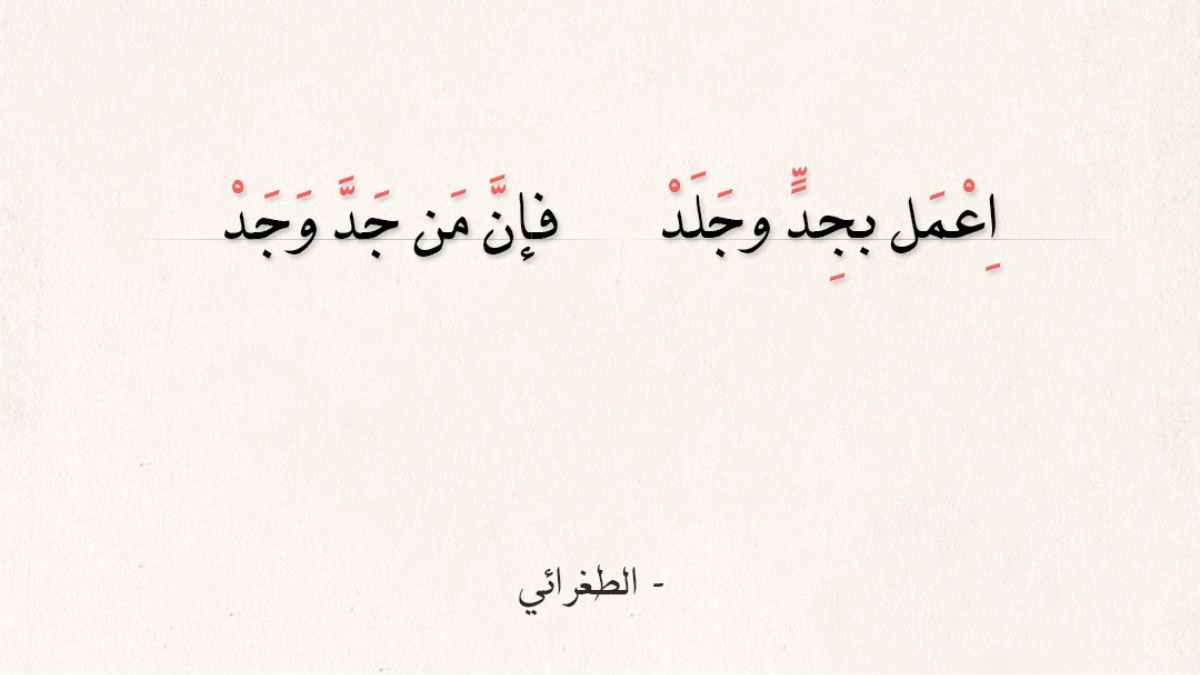 اِعْمَل بجِدًّ وجَلَدْ فإنَّ مَن جَدَّ وَجَدْ
- الطغرائي